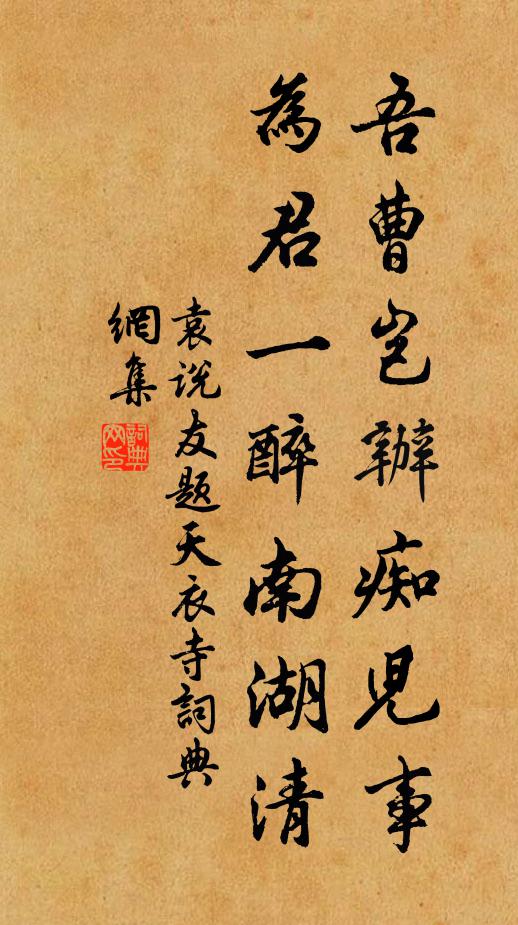 吾曹岂辦痴児事
為君一醉南湖清
袁说友题天衣寺詞典
網集
詞典
网印